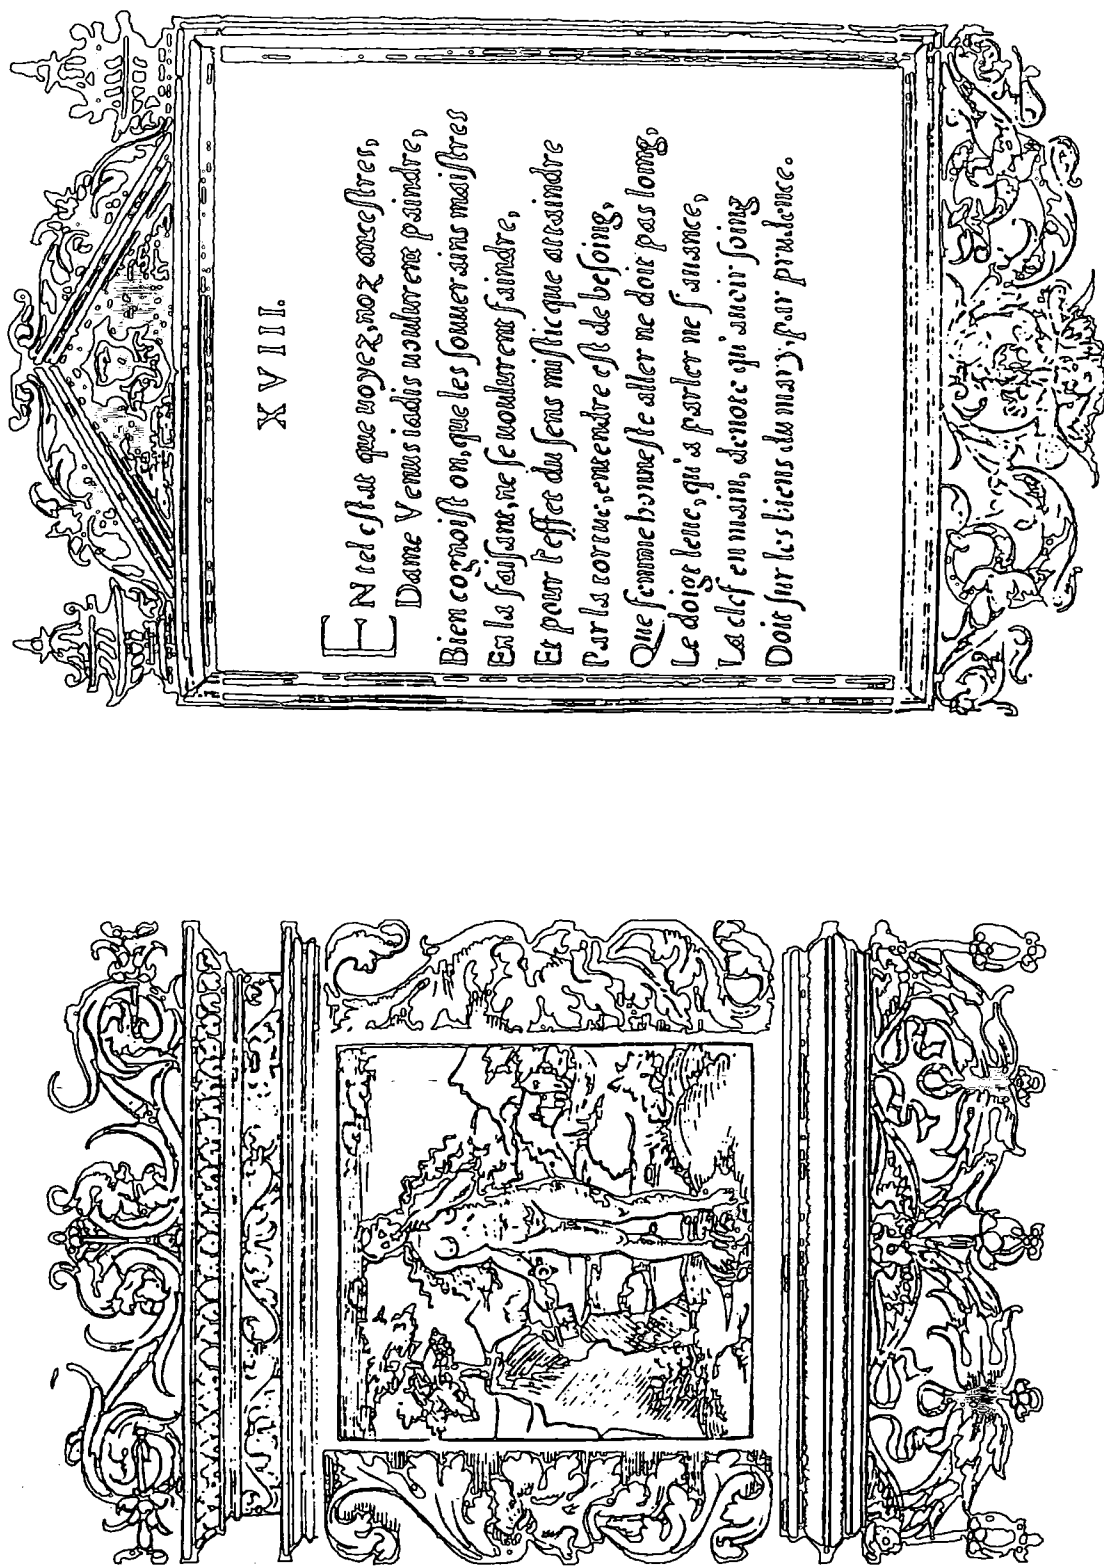 XVIII.
EN tel estat que uoyez, noz ancestres,
Dame Venus iadis uoulurent paindre,
Bien cognoist on, que les souuerains maistres
En la faisant, ne se uoulurent faindre,
Et pour l'effet du sens misticque attaindre
Par la tortue, entendre est de besoing,
Que femme honneste aller ne doit pas loing,
Le doigt leué, qu'a parler ne s'auance,
La clef en main, denote qu'auoir soing
Doit sur les biens du mary, par prudence.